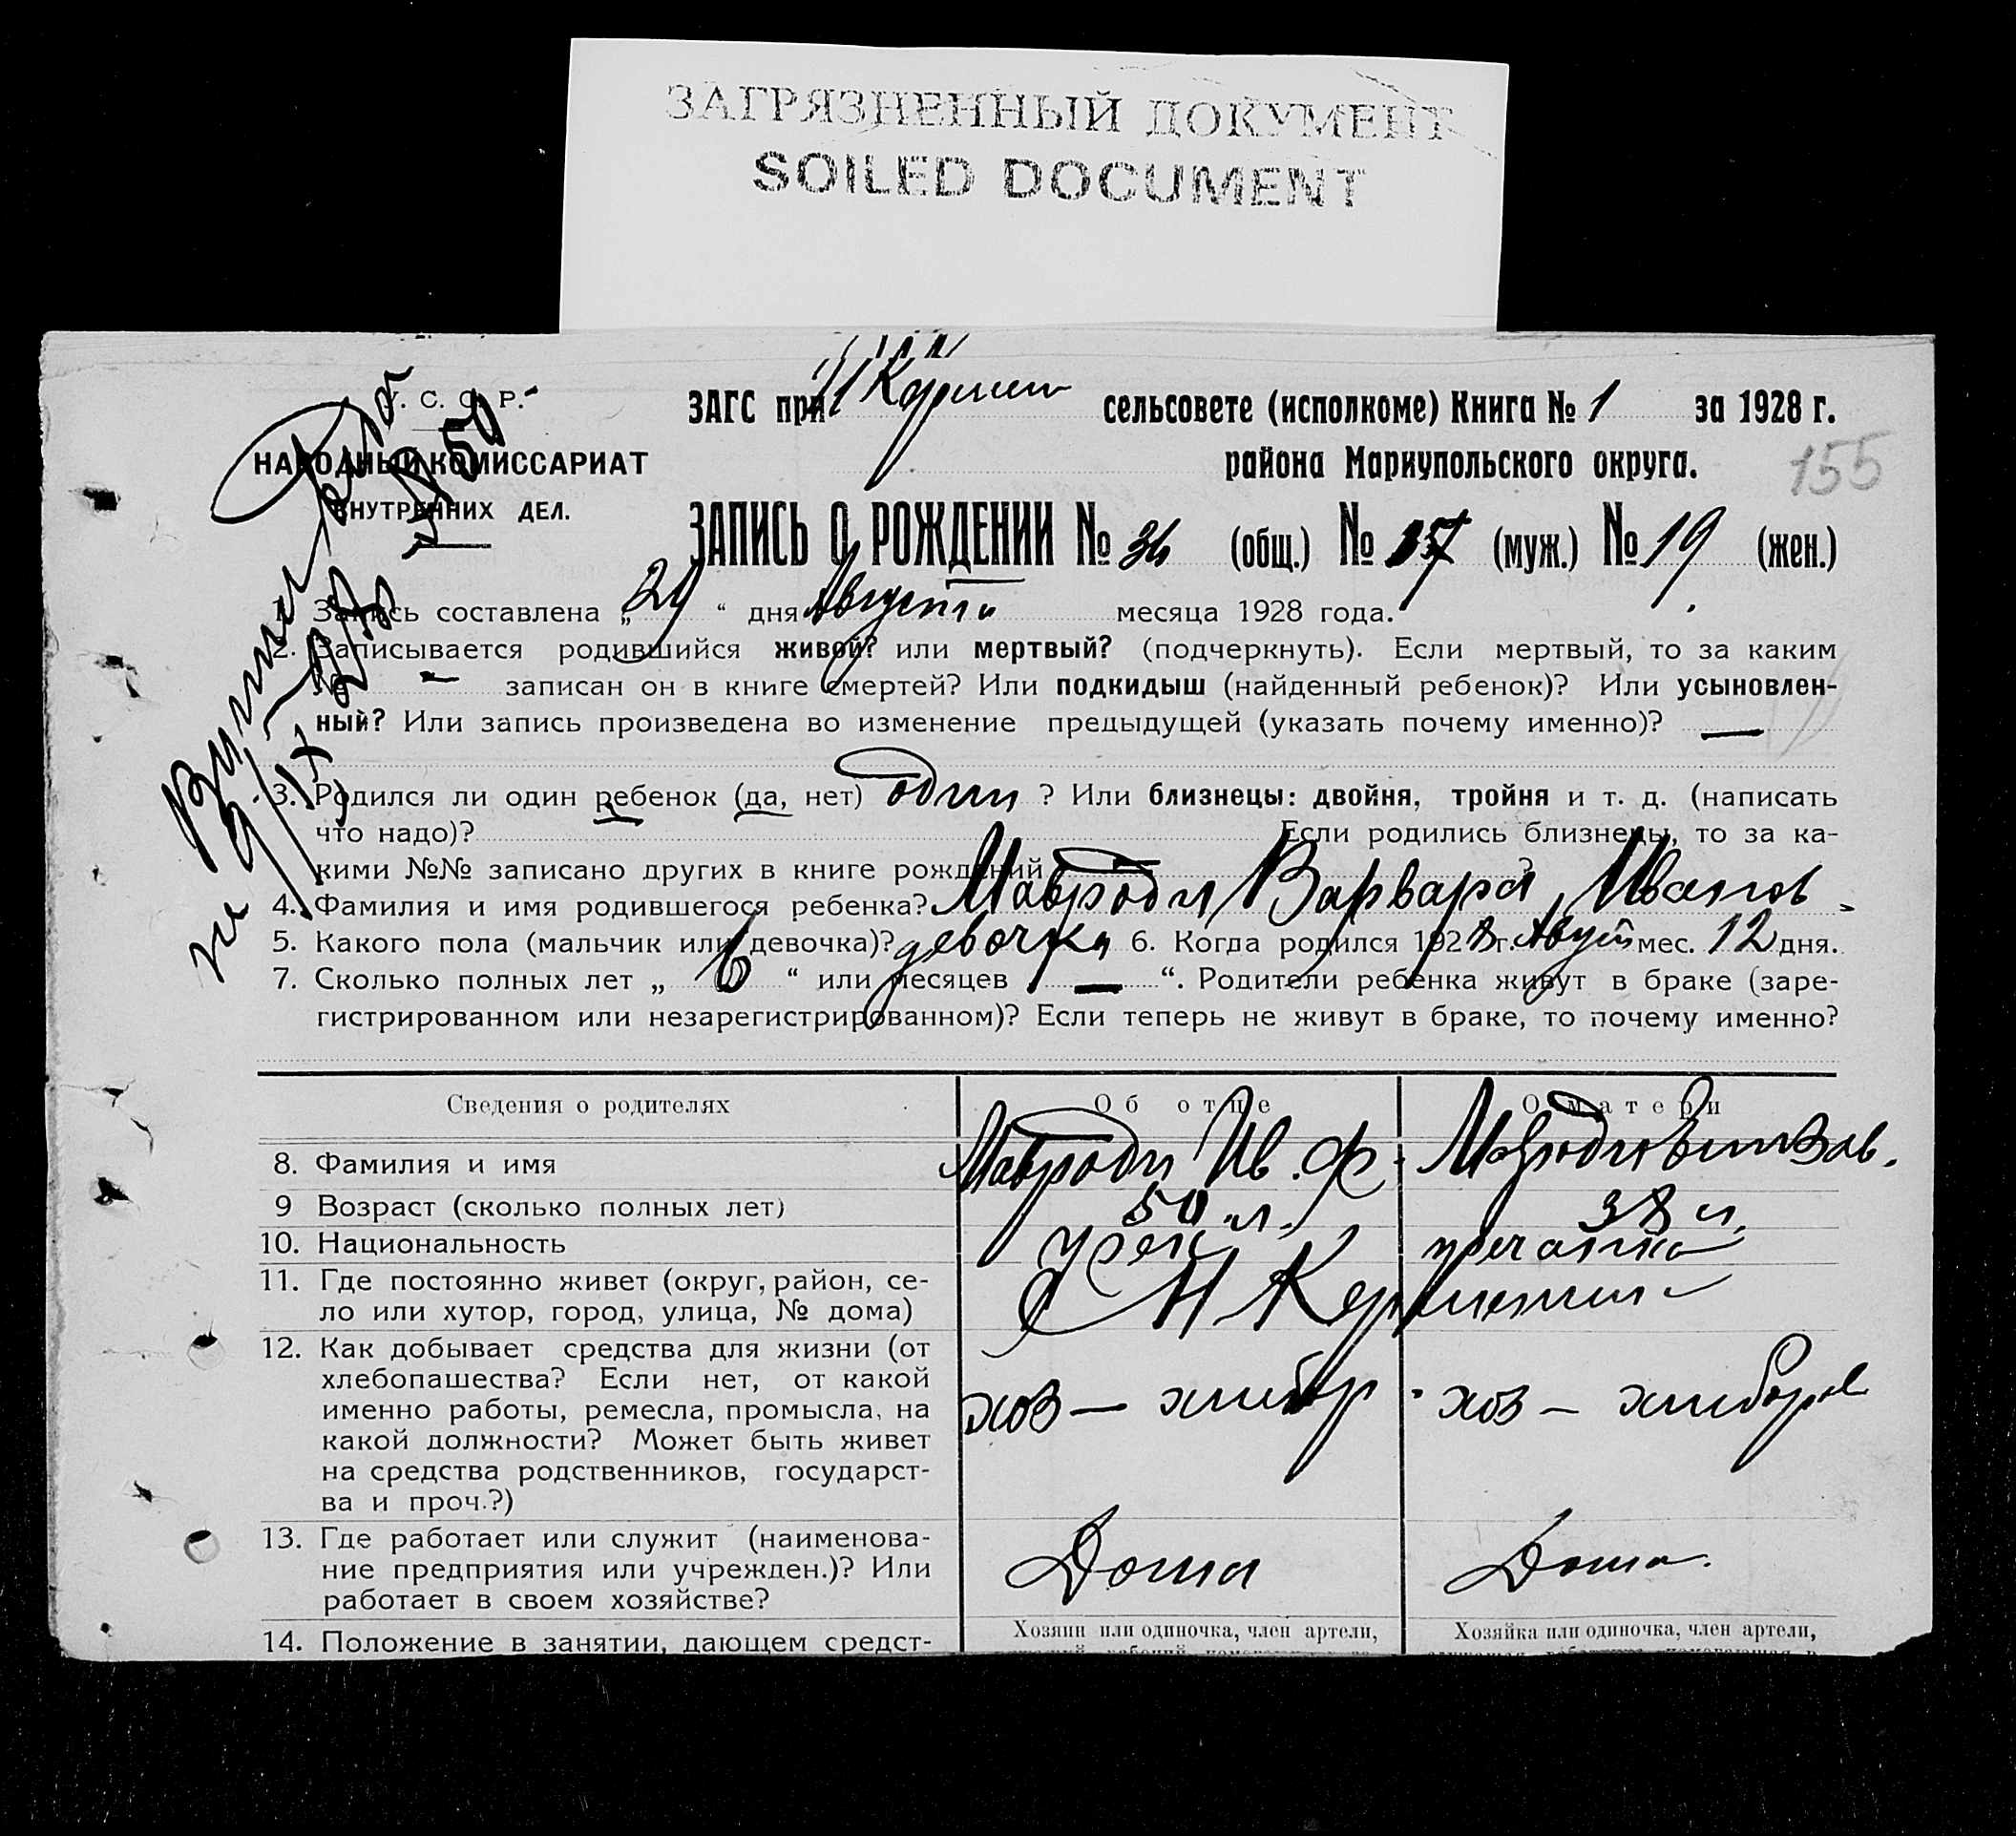 ЗАГРЯЗНЕННЫЙ ДОКУМЕНТ
SOILED DOCUMENT
У. С. С. Р.
НАРОДНЫЙ КОМИССАРИАТ
ВНУТРЕННИХ ДЕЛ.
ЗАГС при сельсовете (исполкоме) Книга № 1 за 1928 г.
района Мариупольского округа.
155
ЗАПИСЬ О РОЖДЕНИИ № 36 (общ.) № (муж.) № 19 (жен.)
1. Запись составлена „ “ дня Августа месяца 1928 года.
2. Записывается родившийся живой? или мертвый? (подчеркнуть). Если мертвый, то за каким
№ — записан он в книге смертей? Или подкидыш (найденный ребенок)? Или усыновлен-
ный? Или запись произведена во изменение предыдущей (указать почему именно)? —
3. Родился ли один ребенок (да, нет) один ? Или близнецы: двойня, тройня и т. д. (написать
что надо)? Если родились близнецы, то за ка-
кими №№ записано других в книге рождений — ?
4. Фамилия и имя родившегося ребенка? Мавроди Варвара Иванов.
5. Какого пола (мальчик или девочка)? девочка 6. Когда родился 1928 г. Август мес. 12 дня.
7. Сколько полных лет „ 6 “ или месяцев „ — “. Родители ребенка живут в браке (заре-
гистрированном или незарегистрированном)? Если теперь не живут в браке, то почему именно?
Сведения о родителях Об отце О матери
8. Фамилия и имя Мавроди Ив. Ф. Мавроди Елизав.
9 Возраст (сколько полных лет) 50 л. 38 л.
10. Национальность грек гречанка
11. Где постоянно живет (округ, район, се-
ло или хутор, город, улица, № дома)
12. Как добывает средства для жизни (от
хлебопашества? Если нет, от какой
именно работы, ремесла, промысла, на
какой должности? Может быть живет
на средства родственников, государст-
ва и проч.?)
хоз — хлибор хоз — хлибор
13. Где работает или служит (наименова-
ние предприятия или учрежден.)? Или
работает в своем хозяйстве?
Дома Дома.
14. Положение в занятии, дающем средст-
Хозяин или одиночка, член артели, Хозяйка или одиночка, член артели,